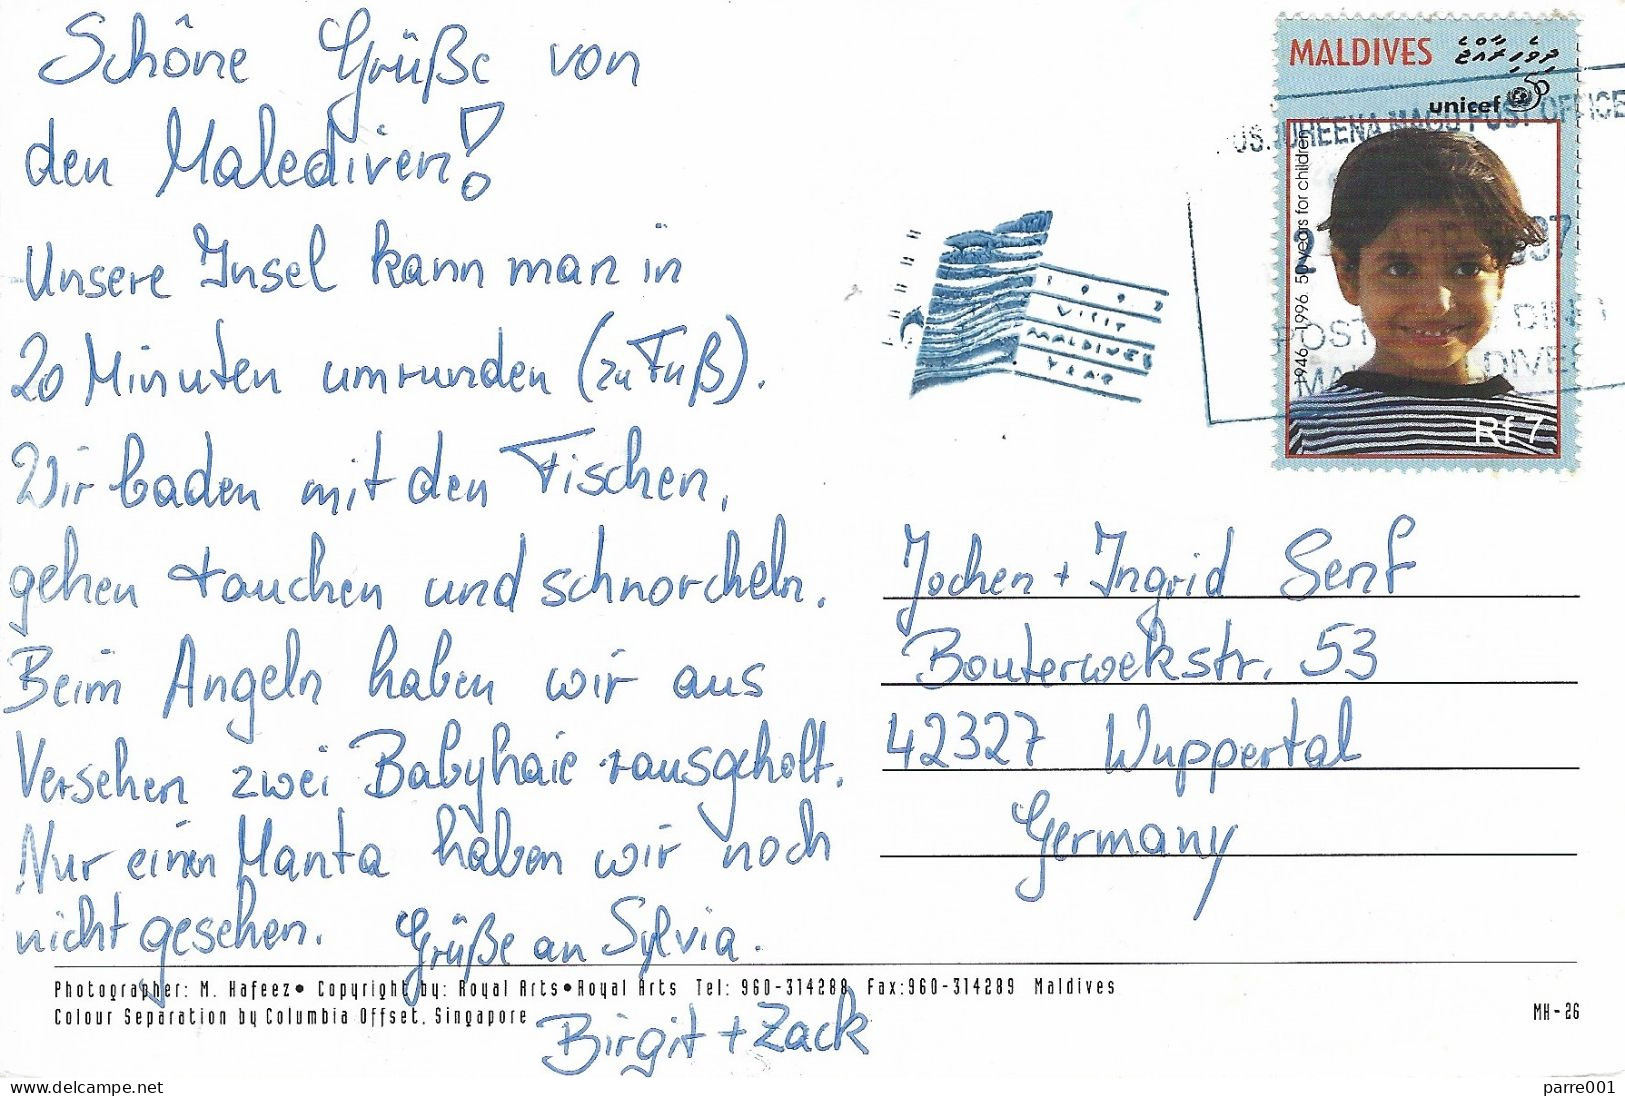 Schöne Grüße von
den Malediven!
Unsere Insel kann man in
20 Minuten umrunden (zu Fuß).
Wir baden mit den Fischen,
gehen tauchen und schnorcheln.
Beim Angeln haben wir aus
Versehen zwei Babyhaie rausgeholt.
Nur einen Manta haben wir noch
nicht gesehen. Grüße an Sylvia.
Birgit + Zack
MALDIVES ދިވެހިރާއްޖެ
unicef 50
1946 - 1996 50 years for children
Rf 7
MAGU POST OFFICE
1997
VISIT
MALDIVES
YEAR
Jochen + Ingrid Senf
Bouterwekstr. 53
42327 Wuppertal
Germany
Photographer: M. Hafeez• Copyright by: Royal Arts•Royal Arts Tel: 960-314288 Fax:960-314289 Maldives
Colour Separation by Columbia Offset, Singapore
MH-26
www.delcampe.net
parre001